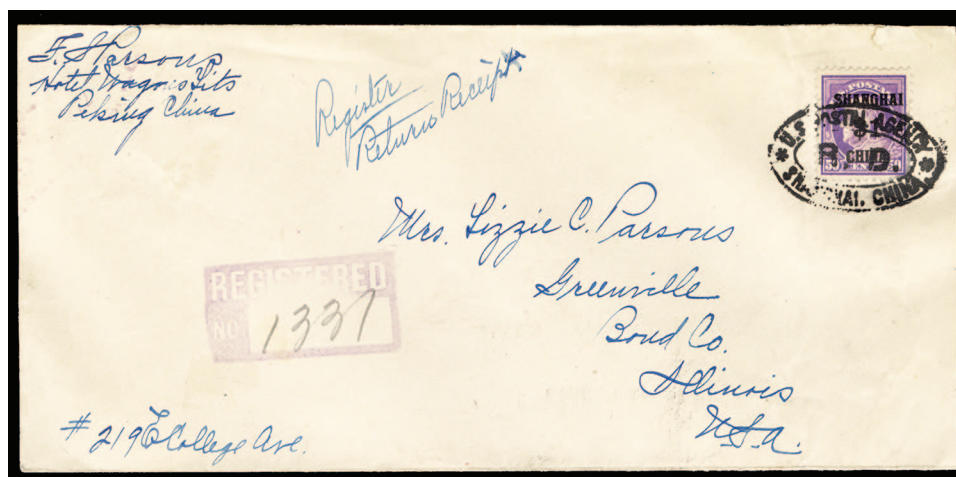 F. S. Parsons
Hotel Wagons Lits
Peking China
Register
Return Receipt
SHANGHAI
$1
CHINA
50 CENTS 50
U.S. POSTAL AGENCY
R. D.
SHANGHAI, CHINA.
Mrs. Lizzie C. Parsons
Greenville
Bond Co.
Illinois
U.S.A.
REGISTERED
NO 1337
# 219 E College Ave.